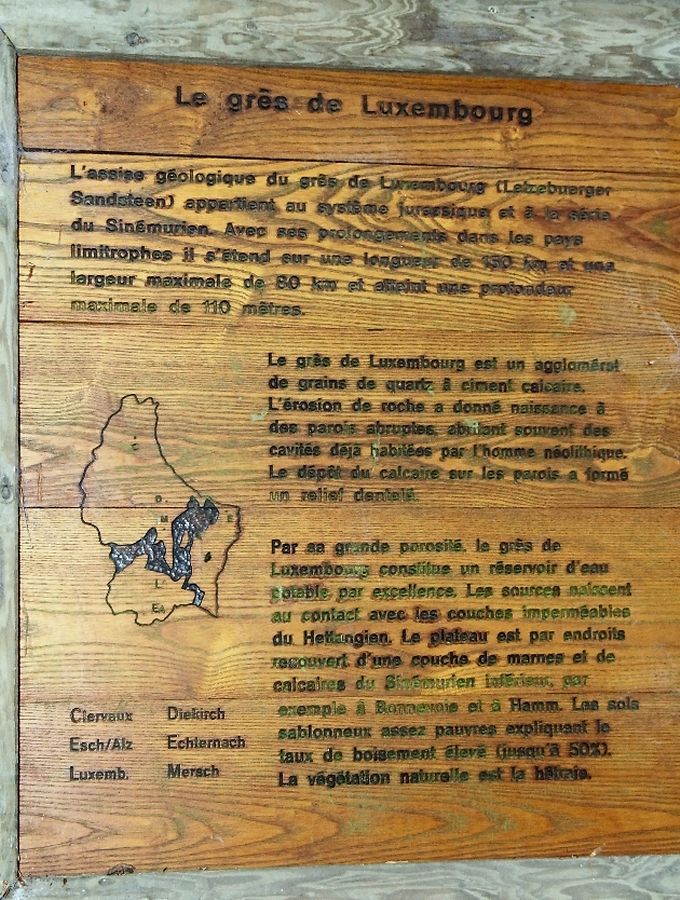 Le grès de Luxembourg
L'assise géologique du grès de Luxembourg (Letzebuerger
Sandsteen) appartient au système jurassique et à la série
du Sinémurien. Avec ses prolongements dans les pays
limitrophes il s'étend sur une longueur de 150 km et une
largeur maximale de 80 km et atteint une profondeur
maximale de 110 mètres.
Le grès de Luxembourg est un agglomérat
de grains de quartz à ciment calcaire.
L'érosion de roche a donné naissance à
des parois abruptes, abritant souvent des
cavités déja habitées par l'homme néolithique.
Le dépôt du calcaire sur les parois a formé
un relief dentelé.
D
M
E
L
EA
Par sa grande porosité, le grès de
Luxembourg constitue un réservoir d'eau
potable par excellence. Les sources naissent
au contact avec les couches imperméables
du Hettangien. Le plateau est par endroits
recouvert d'une couche de marnes et de
calcaires du Sinémurien inférieur, par
exemple à Bonnevoie et à Hamm. Les sols
sablonneux assez pauvres expliquent le
taux de boisement élevé (jusqu'à 50%).
La végétation naturelle est la hêtraie.
Clervaux Diekirch
Esch/Alz Echternach
Luxemb. Mersch